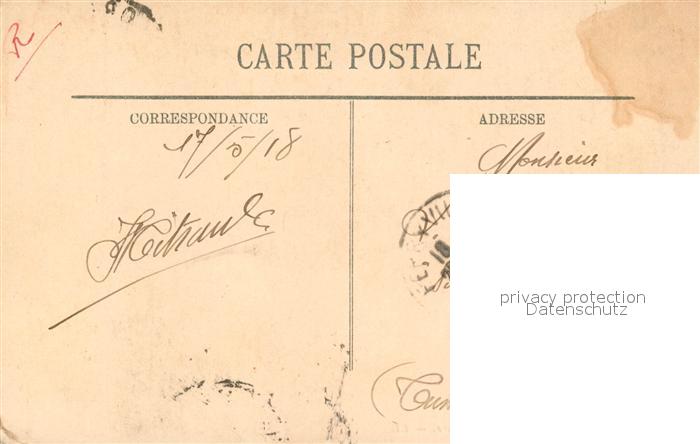 CARTE POSTALE
CORRESPONDANCE
17/5/18
ADRESSE
Monsieur
privacy protection
Datenschutz